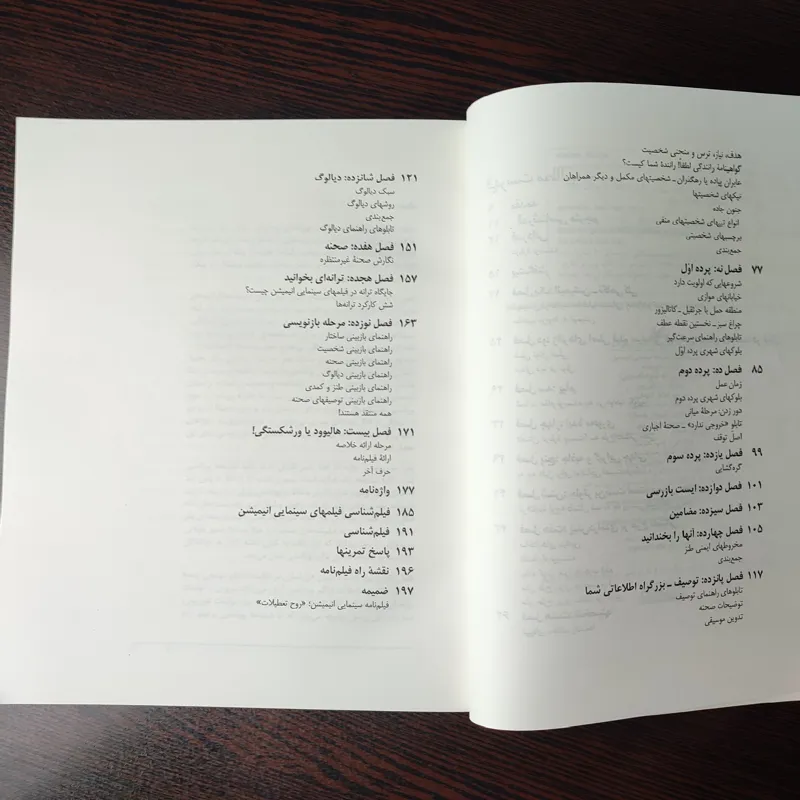 هدف، نیاز، ترس و منحنی شخصیت
گواهینامه رانندگی لطفاً! رانندهٔ شما کیست؟
عابران پیاده یا رهگذران ـ شخصیتهای مکمل و دیگر همراهان
نیکهای شخصیتها
جنون جاده
انواع تیپهای شخصیتهای منفی
برچسبهای شخصیتی
جمع‌بندی
۷۷ فصل نه: پرده اوّل
شروعهایی که اولویت دارد
خیابانهای موازی
منطقه حمل با جرثقیل ـ کاتالیزور
چراغ سبز ـ نخستین نقطه عطف
تابلوهای راهنمای سرعت‌گیر
بلوکهای شهری پرده اوّل
۸۵ فصل ده: پرده دوم
زمان عمل
بلوکهای شهری پرده دوم
دور زدن: مرحلهٔ میانی
تابلو «خروجی ندارد» ـ صحنهٔ اجباری
اصل توقف
۹۹ فصل یازده: پرده سوم
گره‌گشایی
۱۰۱ فصل دوازده: ایست بازرسی
۱۰۳ فصل سیزده: مضامین
۱۰۵ فصل چهارده: آنها را بخندانید
مخروطهای ایمنی طنز
جمع‌بندی
۱۱۷ فصل پانزده: توصیف ـ بزرگراه اطلاعاتی شما
تابلوهای راهنمای توصیف
توضیحات صحنه
تدوین موسیقی
۱۲۱ فصل شانزده: دیالوگ
سبک دیالوگ
روشهای دیالوگ
جمع‌بندی
تابلوهای راهنمای دیالوگ
۱۵۱ فصل هفده: صحنه
نگارش صحنهٔ غیرمنتظره
۱۵۷ فصل هجده: ترانه‌ای بخوانید
جایگاه ترانه در فیلمهای سینمایی انیمیشن چیست؟
شش کارکرد ترانه‌ها
۱۶۳ فصل نوزده: مرحله بازنویسی
راهنمای بازبینی ساختار
راهنمای بازبینی شخصیت
راهنمای بازبینی صحنه
راهنمای بازبینی دیالوگ
راهنمای بازبینی طنز و کمدی
راهنمای بازبینی توصیفهای صحنه
همه منتقد هستند!
۱۷۱ فصل بیست: هالیوود یا ورشکستگی!
مرحله ارائه خلاصه
ارائهٔ فیلم‌نامه
حرف آخر
۱۷۷ واژه‌نامه
۱۸۵ فیلم‌شناسی فیلمهای سینمایی انیمیشن
۱۹۱ فیلم‌شناسی
۱۹۳ پاسخ تمرینها
۱۹۶ نقشهٔ راه فیلم‌نامه
۱۹۷ ضمیمه
فیلم‌نامه سینمایی انیمیشن؛ «روح تعطیلات»